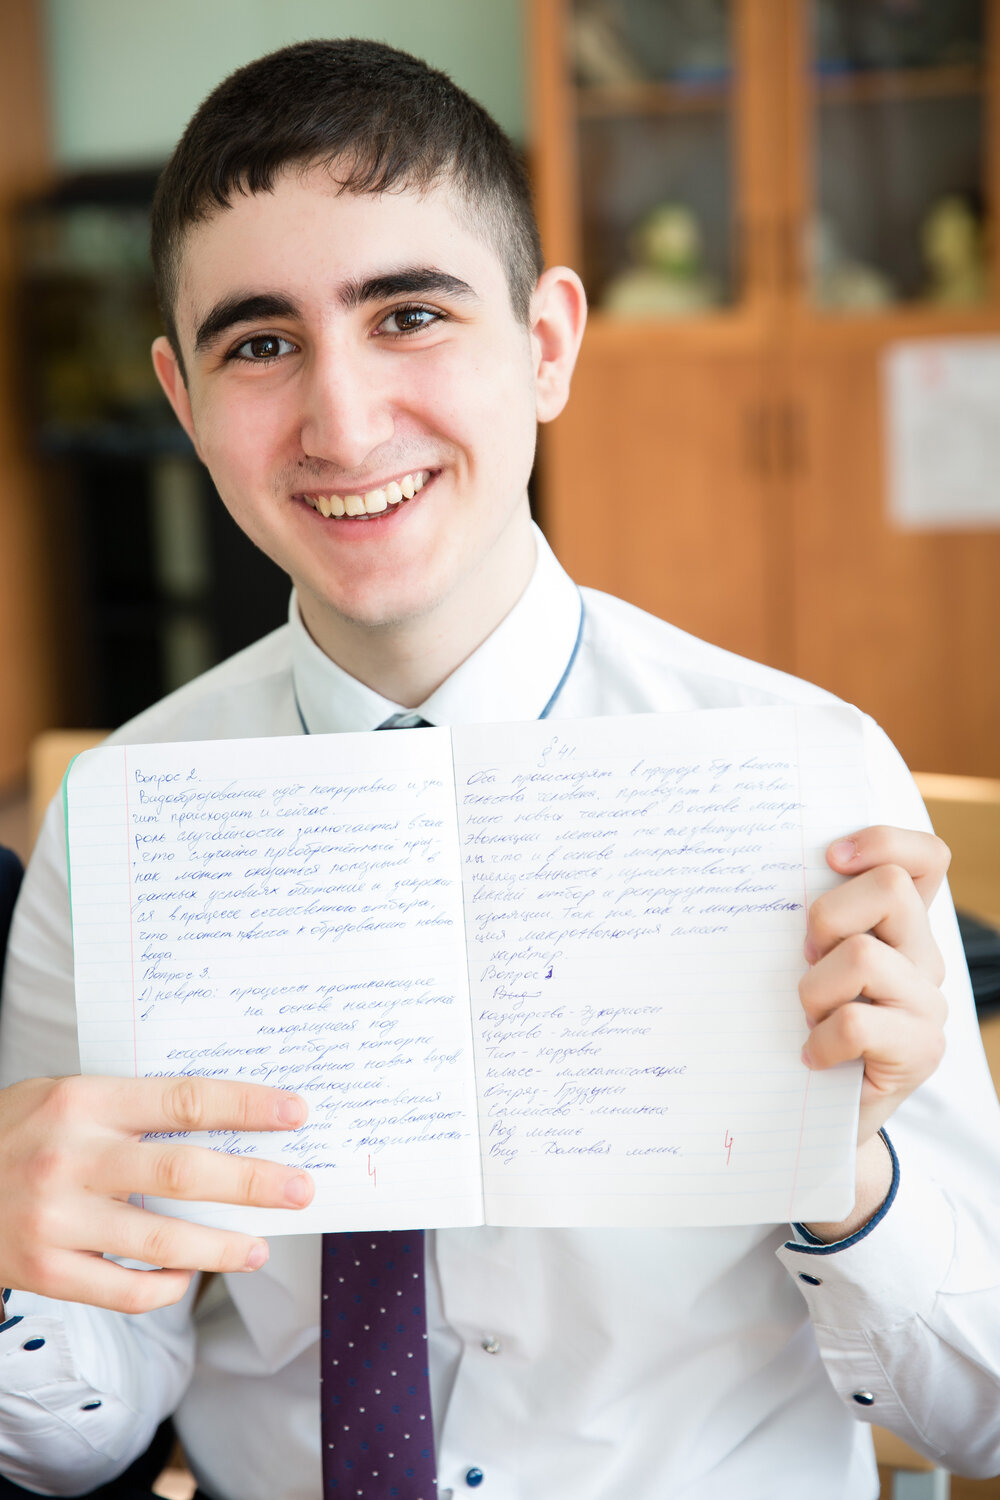 Вопрос 2.
Видообразование идёт непрерывно и зна-
чит происходит и сейчас.
роль случайности заключается в том
что случайно приобретённый приз-
нак может оказаться полезным в
данных условиях обитание и закрепит-
ся в процессе естественного отбора,
что может привести к образованию нового
вида
Вопрос 3.
1) неверно: процессы протикающие
в на основе наследственной
находящиеся под
естественного отбора которые
приводит к образованию новых видов
возникновения
нового
связи с родительск
4
§ 41
Оба происходят в природе без вмеша-
тельства человека, приводит к появле-
нию новых таксонов. В основе макро-
эволюции лежат те же движущие си-
лы что и в основе микроэволюции:
наследственность, изменчивость, естест-
венный отбор и репродуктивной
изоляции. Так же, как и микроэволю-
ция макроэволюция имеет
характер.
Вопрос 1.
Вид
Надцарство - Эукариоты
Царство - животные
Тип - хордовые
класс - млекопитающие
Отряд - Грузуны
Семейство - мышиные
Род мышь
Вид - Домовая мышь.
4